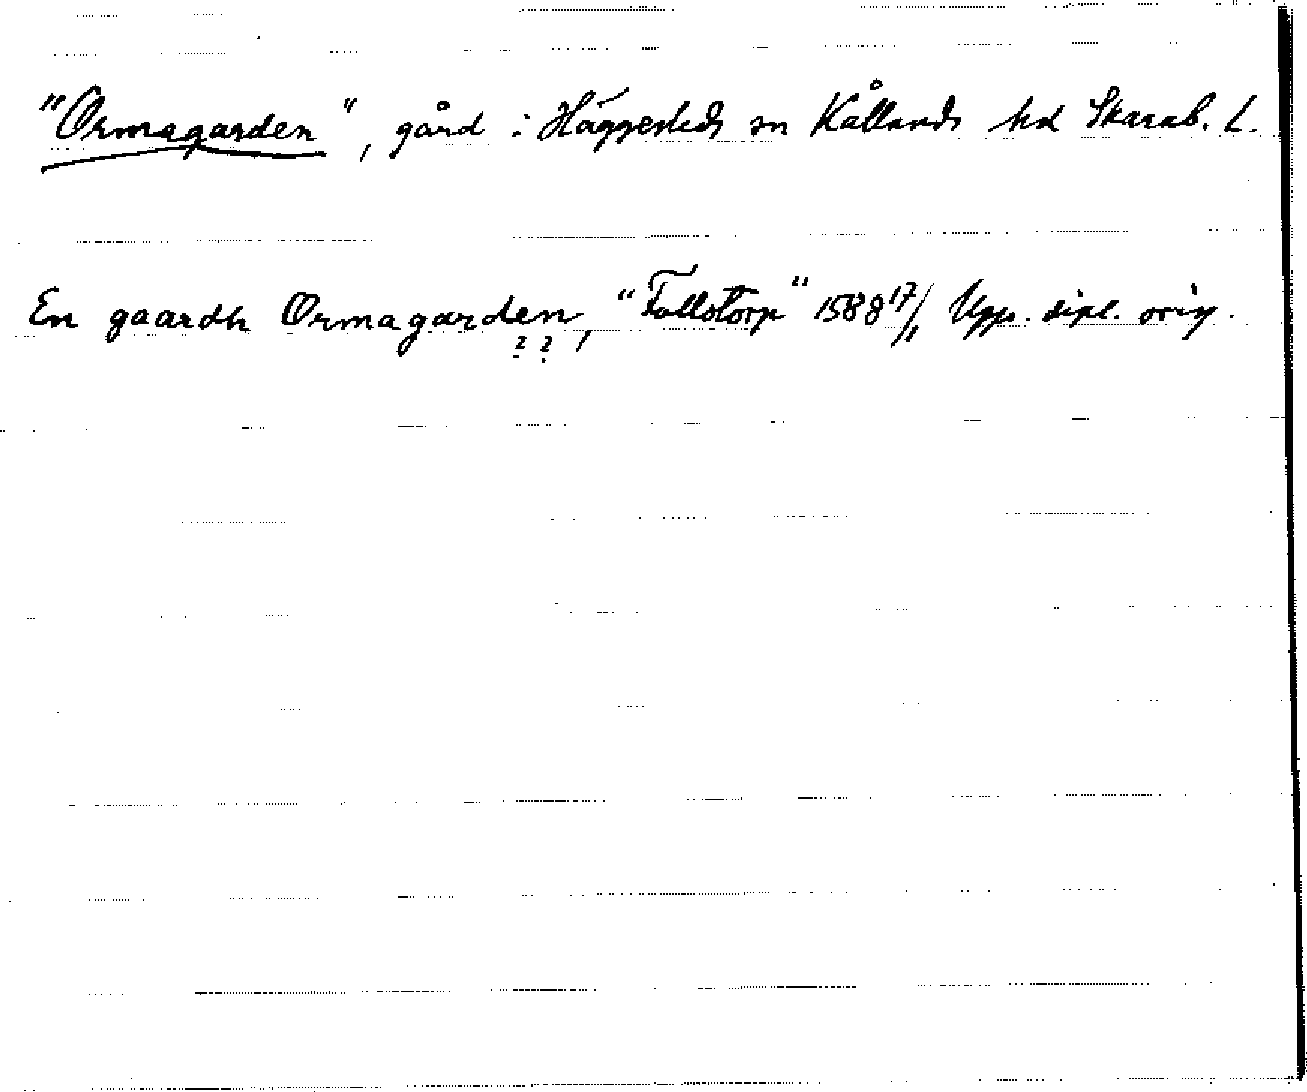 "Ormagarden", gård i Häggesleds sn Kållands hd Skarab. L.
En gaardh Ormagarden, "Tallstorp" 1588 17/1 Upps. dipl. orig.
? ?